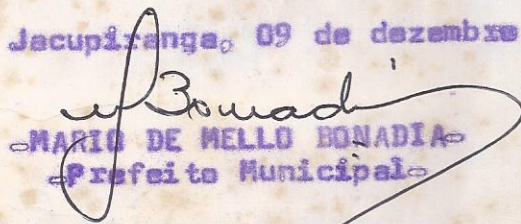 Jacupiranga, 09 de dezembro
M Bonadia
-MARIO DE MELLO BONADIA-
-Prefeito Municipal-